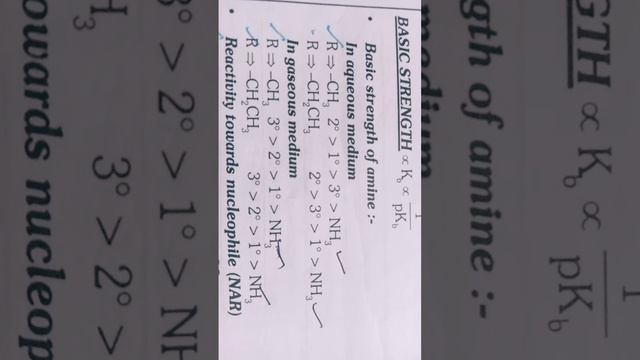 BASIC STRENGTH ∝ K_b ∝ 1/pK_b
• Basic strength of amine :-
In aqueous medium
R ⇒ -CH₃ 2° > 1° > 3° > NH₃
R ⇒ -CH₂CH₃ 2° > 3° > 1° > NH₃
In gaseous medium
R ⇒ -CH₃ 3° > 2° > 1° > NH₃
R ⇒ -CH₂CH₃ 3° > 2° > 1° > NH₃
• Reactivity towards nucleophile (NAR)